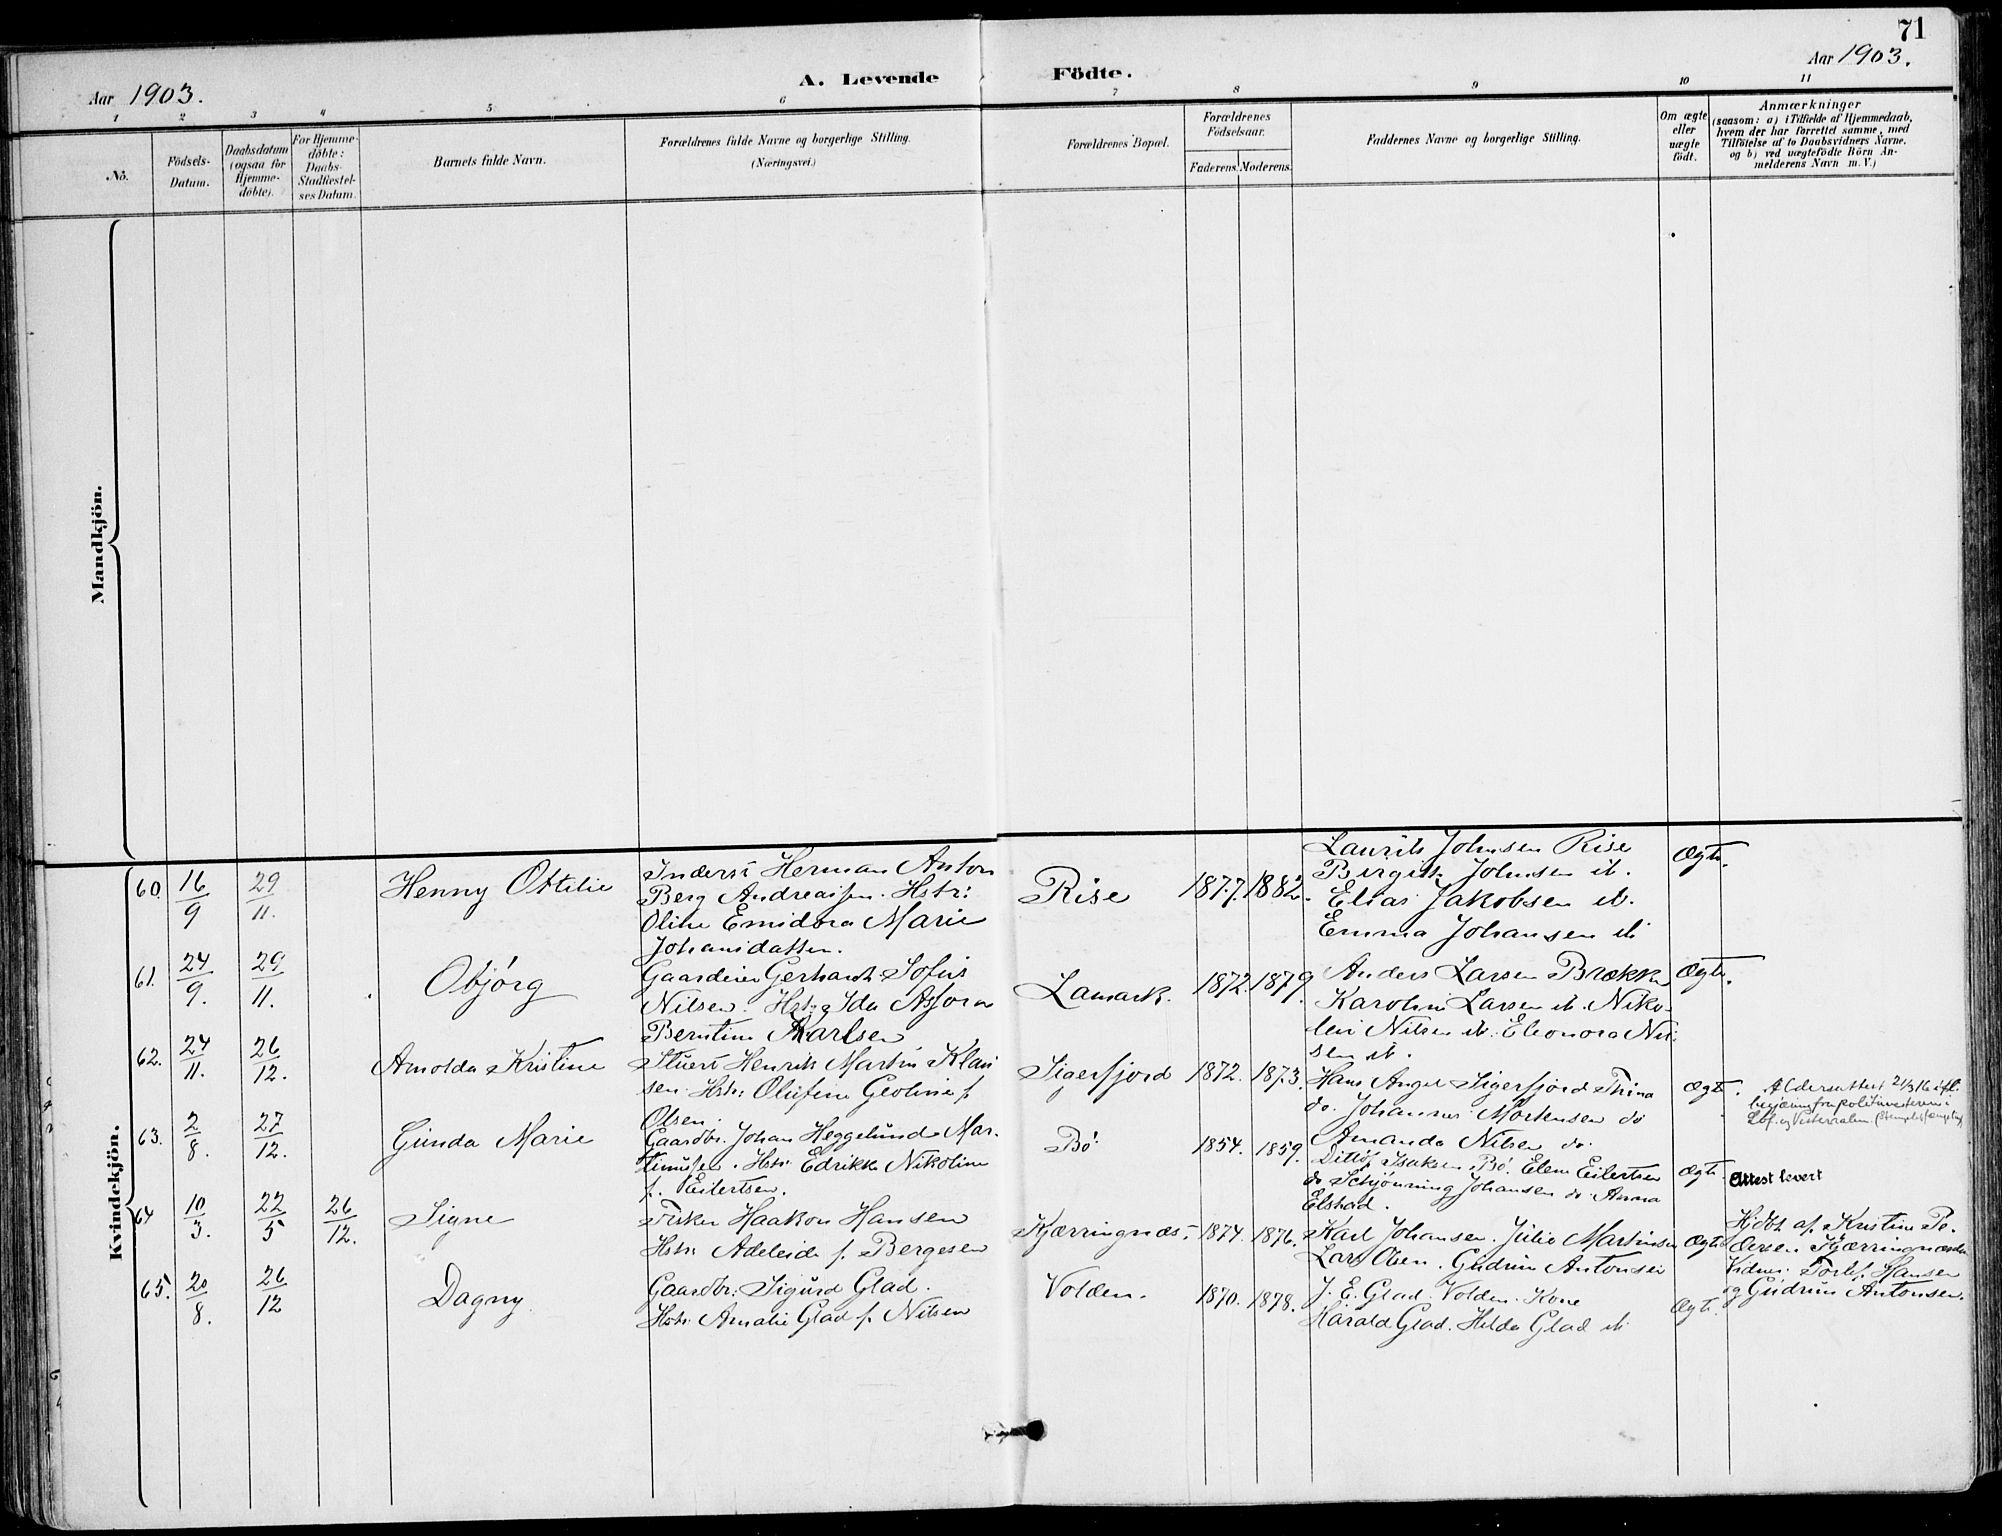 71
Aar 1903.
A. Levende Födte.
Aar 1903.
1 2 3 4 5 6 7 8 9 10 11
No.
Födsels-
Datum.
Daabsdatum
(ogsaa for
Hjemme-
døbte).
For Hjemme-
døbte:
Daabs-
Stadfæstel-
ses Datum.
Barnets fulde Navn.
Forældrenes fulde Navne og borgerlige Stilling.
(Næringsvei.)
Forældrenes Bopæl.
Forældrenes
Födselsaar.
Faderens. Moderens.
Faddernes Navne og borgerlige Stilling.
Om ægte
eller
uægte
født.
Anmærkninger
(saasom: a) i Tilfælde af Hjemmedaab,
hvem der har forrettet samme, med
Tilföielse af to Daabsvidners Navne.
og b) ved uægtefödte Börn An-
melderens Navn m. V.)
Mandkjön.
Kvindekjön.
60. 16/9 29/11.
Henny Ottilie
Inderst Herman Anton
Berg Andreassen. Hstr:
Oline Emidora Marie
Johansdatter.
Rise
1877. 1882.
Laurits Johnsen Rise
Birgith Johnsen ib.
Elias Jakobsen ib.
Emma Johansen ib
Ægte.
61. 24/9. 29/11.
Objørg
Gaardeier Gerhardt Sofus
Nilsen. Hstr: Ida Asora
Berntine Karlsen
Lamark.
1872. 1879.
Anders Larsen Brækka
Karoline Larsen ib. Niko-
lai Nilsen ib. Eleonora Nil-
sen ib.
Ægte.
62. 24/11. 26/12.
Arnolda Kristine
Stuert Henrik Martin Klau
sen. Hstr: Olufine Geoline f.
Olsen.
Sigerfjord
1872. 1873.
Hans Angel Sigerfjord Trina
do. Johannes Mortensen do
Amanda Nilsen do.
Ægte.
Aldersattest 21/3 16 ifl.
begjæring fra politimesteren i
Lof. og Vesteraalen.
63. 2/8. 27/12.
Gunda Marie
Gaardbr. Johan Heggelund Mar-
tinussen. Hstr: Edrikke Nikoline
f. Eilertsen.
Bø
1854. 1859.
Ditlef Isaksen Bø. Elen Eilertsen
do Schjønning Johansen do. Anna
Elstad.
Ægte.
Attest levert
64 10/3. 22/5 26/12.
Signe
Fisker Haakon Hansen
Hstr: Adeleide f. Bergesen
Kjærringnæs.
1874. 1876.
Karl Johansen. Julie Martinsen
Lars Olsen. Gudrun Antonsen
Ægte
Hjdbt. af Kristine Pe-
dersen Kjærringnæs.
Vidner: Torlef Hansen
og Gudrun Antonsen.
65. 20/8. 26/12
Dagny
Gaardbr: Sigurd Glad.
Hstr: Amalie Glad f. Nilsen
Volden.
1870. 1878.
J. E. Glad. Volden. Kone
Harald Glad. Helda Glad ib
Ægte.